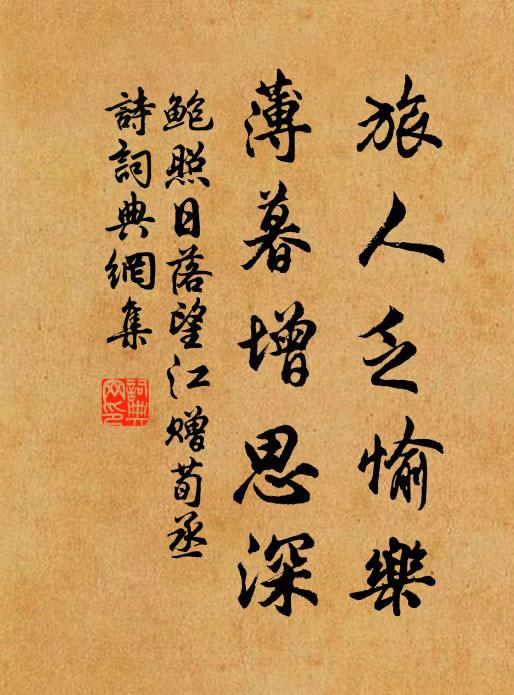 旅人乏愉樂
薄暮增思深
鮑照日落望江贈荀丞
詩詞典網集